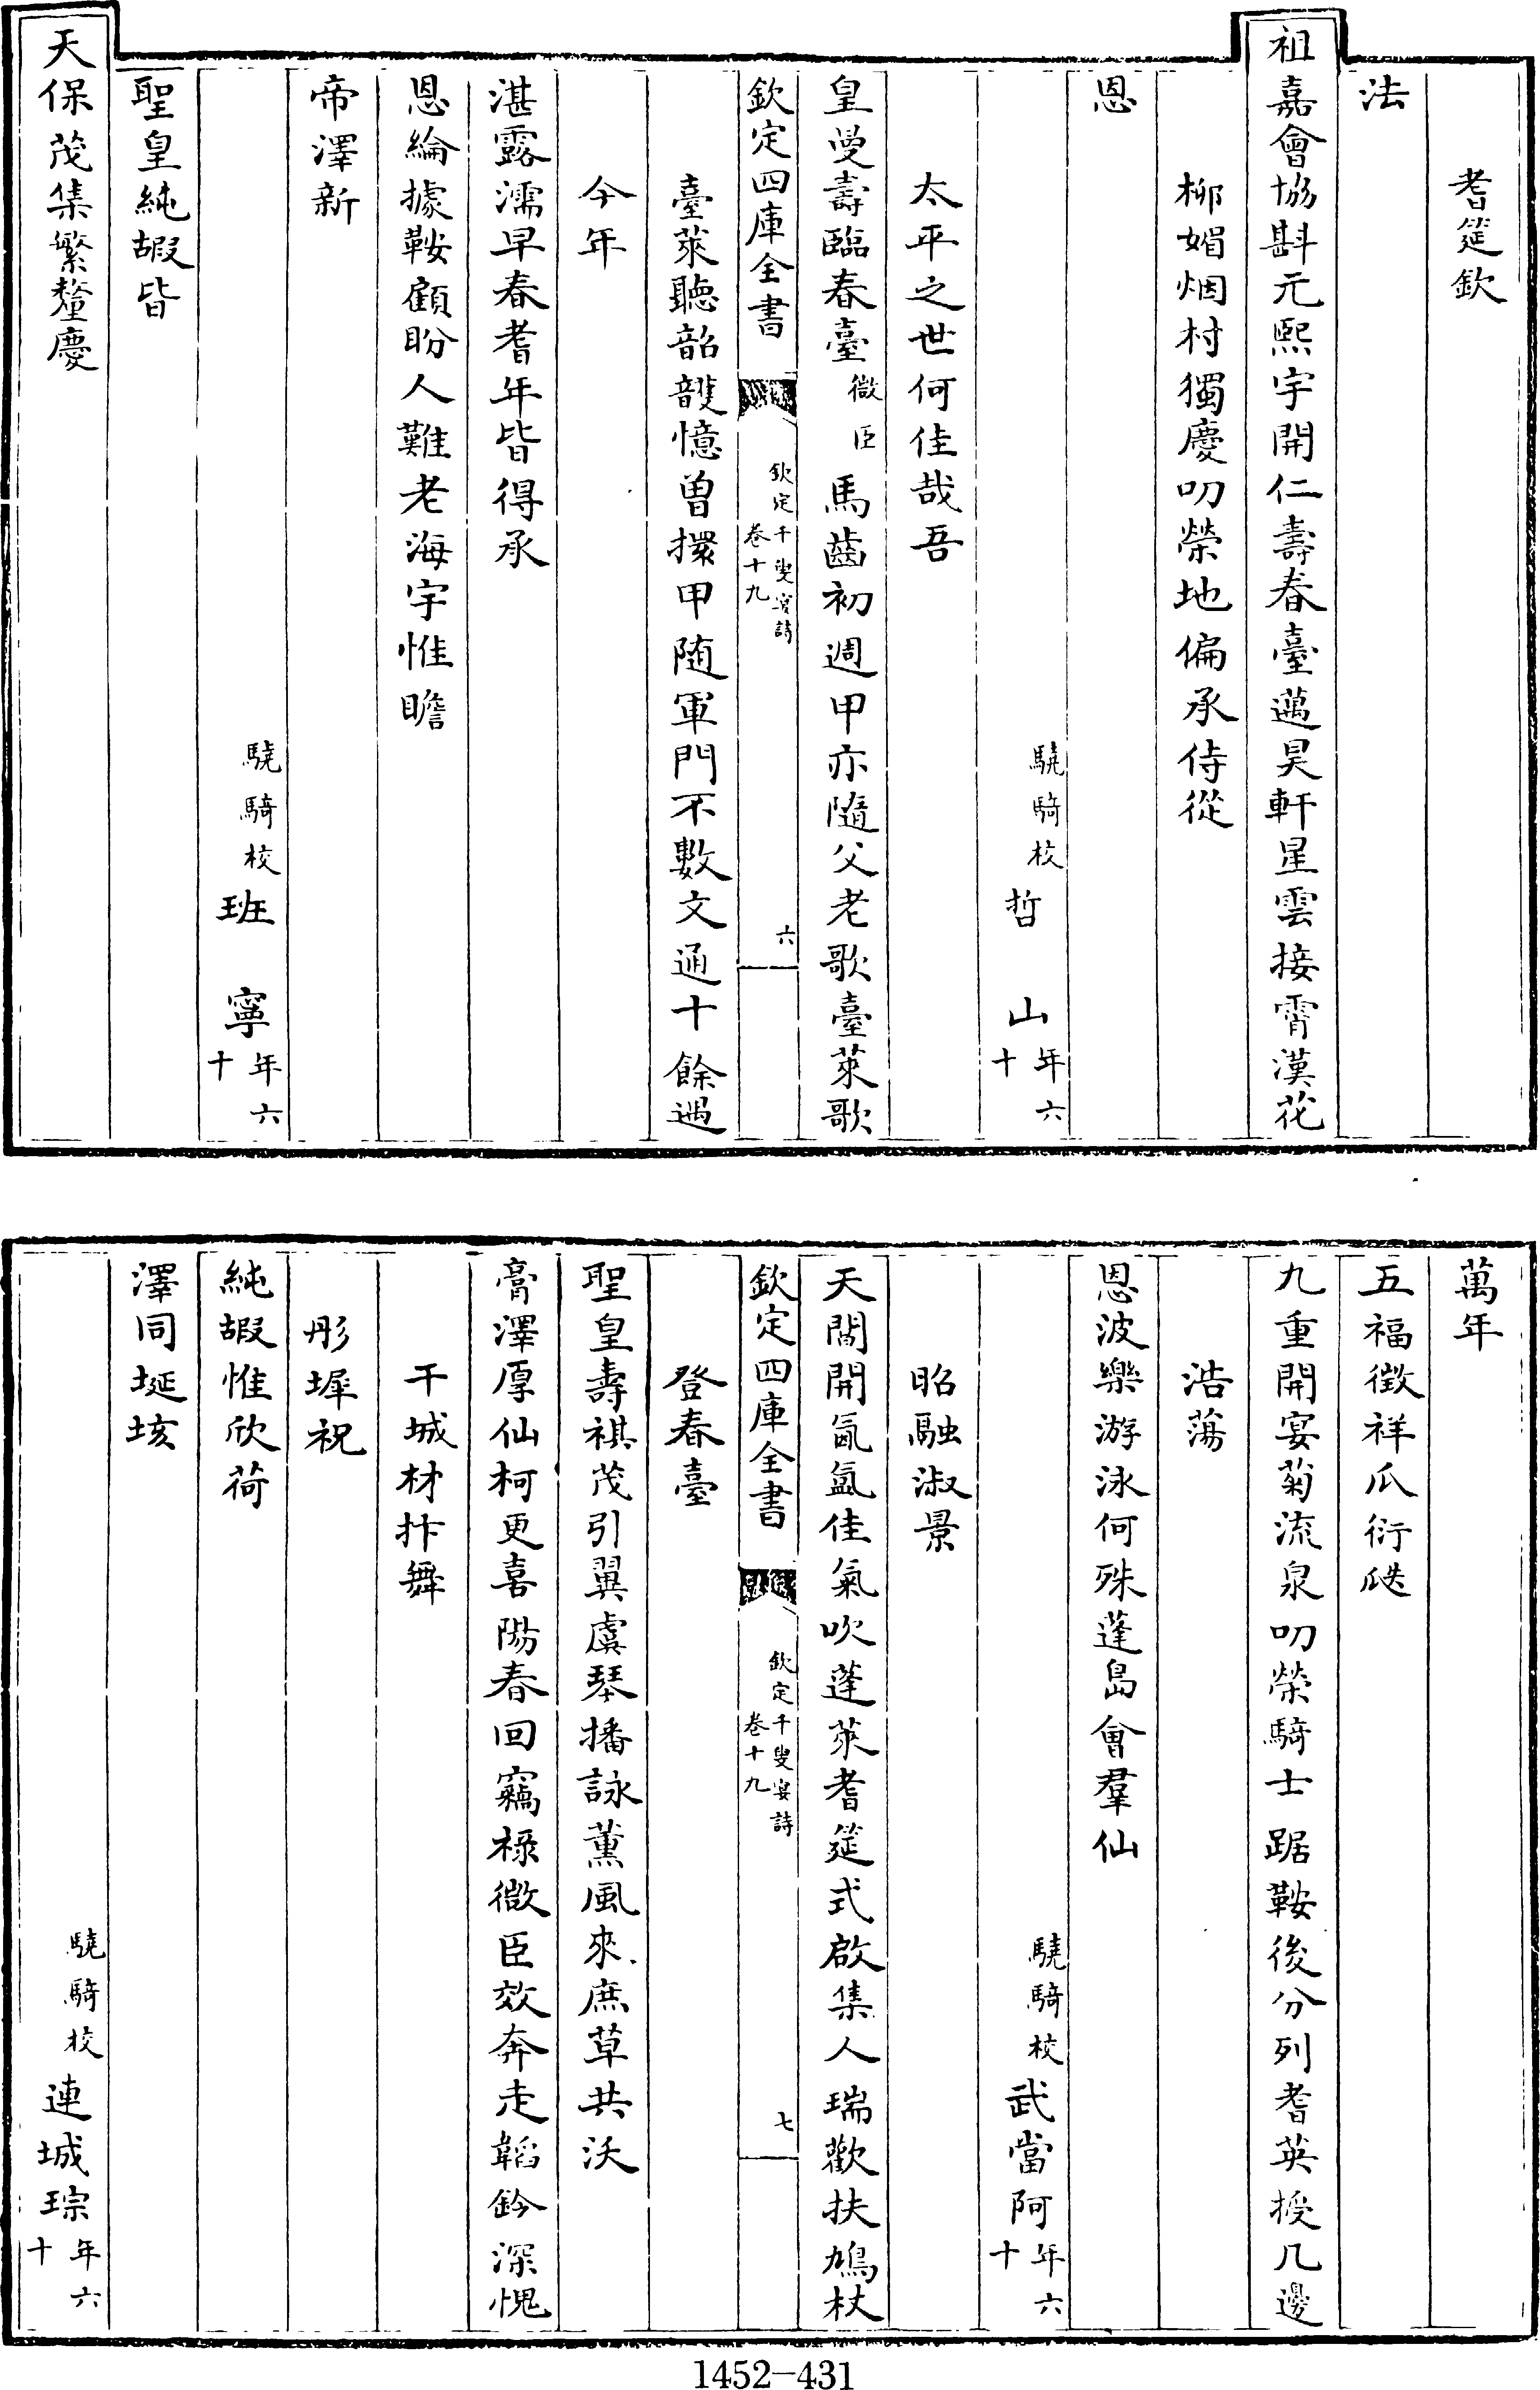 耆筵欽
法
祖嘉會協斟元熙宇開仁壽春臺邁昊軒星雲接霄漢花
柳媚烟村獨慶叨榮地偏承侍從
恩
驍騎校哲山年六十
太平之世何佳哉吾
皇曼壽臨春臺微臣馬齒初週甲亦隨父老歌臺萊歌
欽定四庫全書
欽定千叟宴詩
卷十九
六
臺萊聽韶頀憶曾擐甲隨軍門不數文通十餘過
今年
湛露濡早春耆年皆得承
恩綸據鞍顧盼人難老海宇惟瞻
帝澤新
驍騎校班寧年六十
聖皇純嘏皆
天保茂集繁釐慶
萬年
五福徵祥瓜衍瓞
九重開宴菊流泉叨榮騎士踞鞍後分列耆英授几邊
浩蕩
恩波樂游泳何殊蓬島會羣仙
驍騎校武當阿年六十
昭融淑景
天閶開氤氳佳氣吹蓬萊耆筵式啟集人瑞歡扶鳩杖
欽定四庫全書
欽定千叟宴詩
卷十九
七
登春臺
聖皇壽祺茂引翼虞琴播詠薰風來庶草共沃
膏澤厚仙柯更喜陽春回竊祿微臣效奔走韜鈐深愧
干城材抃舞
彤墀祝
純嘏惟欣荷
澤同埏垓
驍騎校連城琮年六十
1452-431